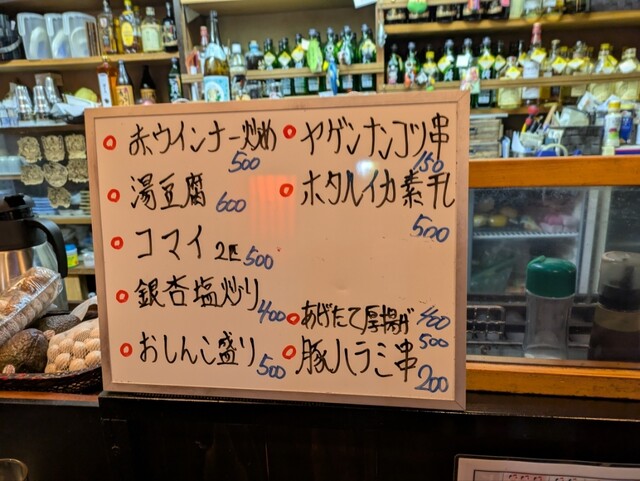 赤ウインナー炒め
500
湯豆腐 600
コマイ 2匹 500
銀杏塩炒り 400
おしんこ盛り 500
ヤゲンナンコツ串
150
ホタルイカ素干
500
あげたて厚揚げ 400
500
豚ハラミ串
200